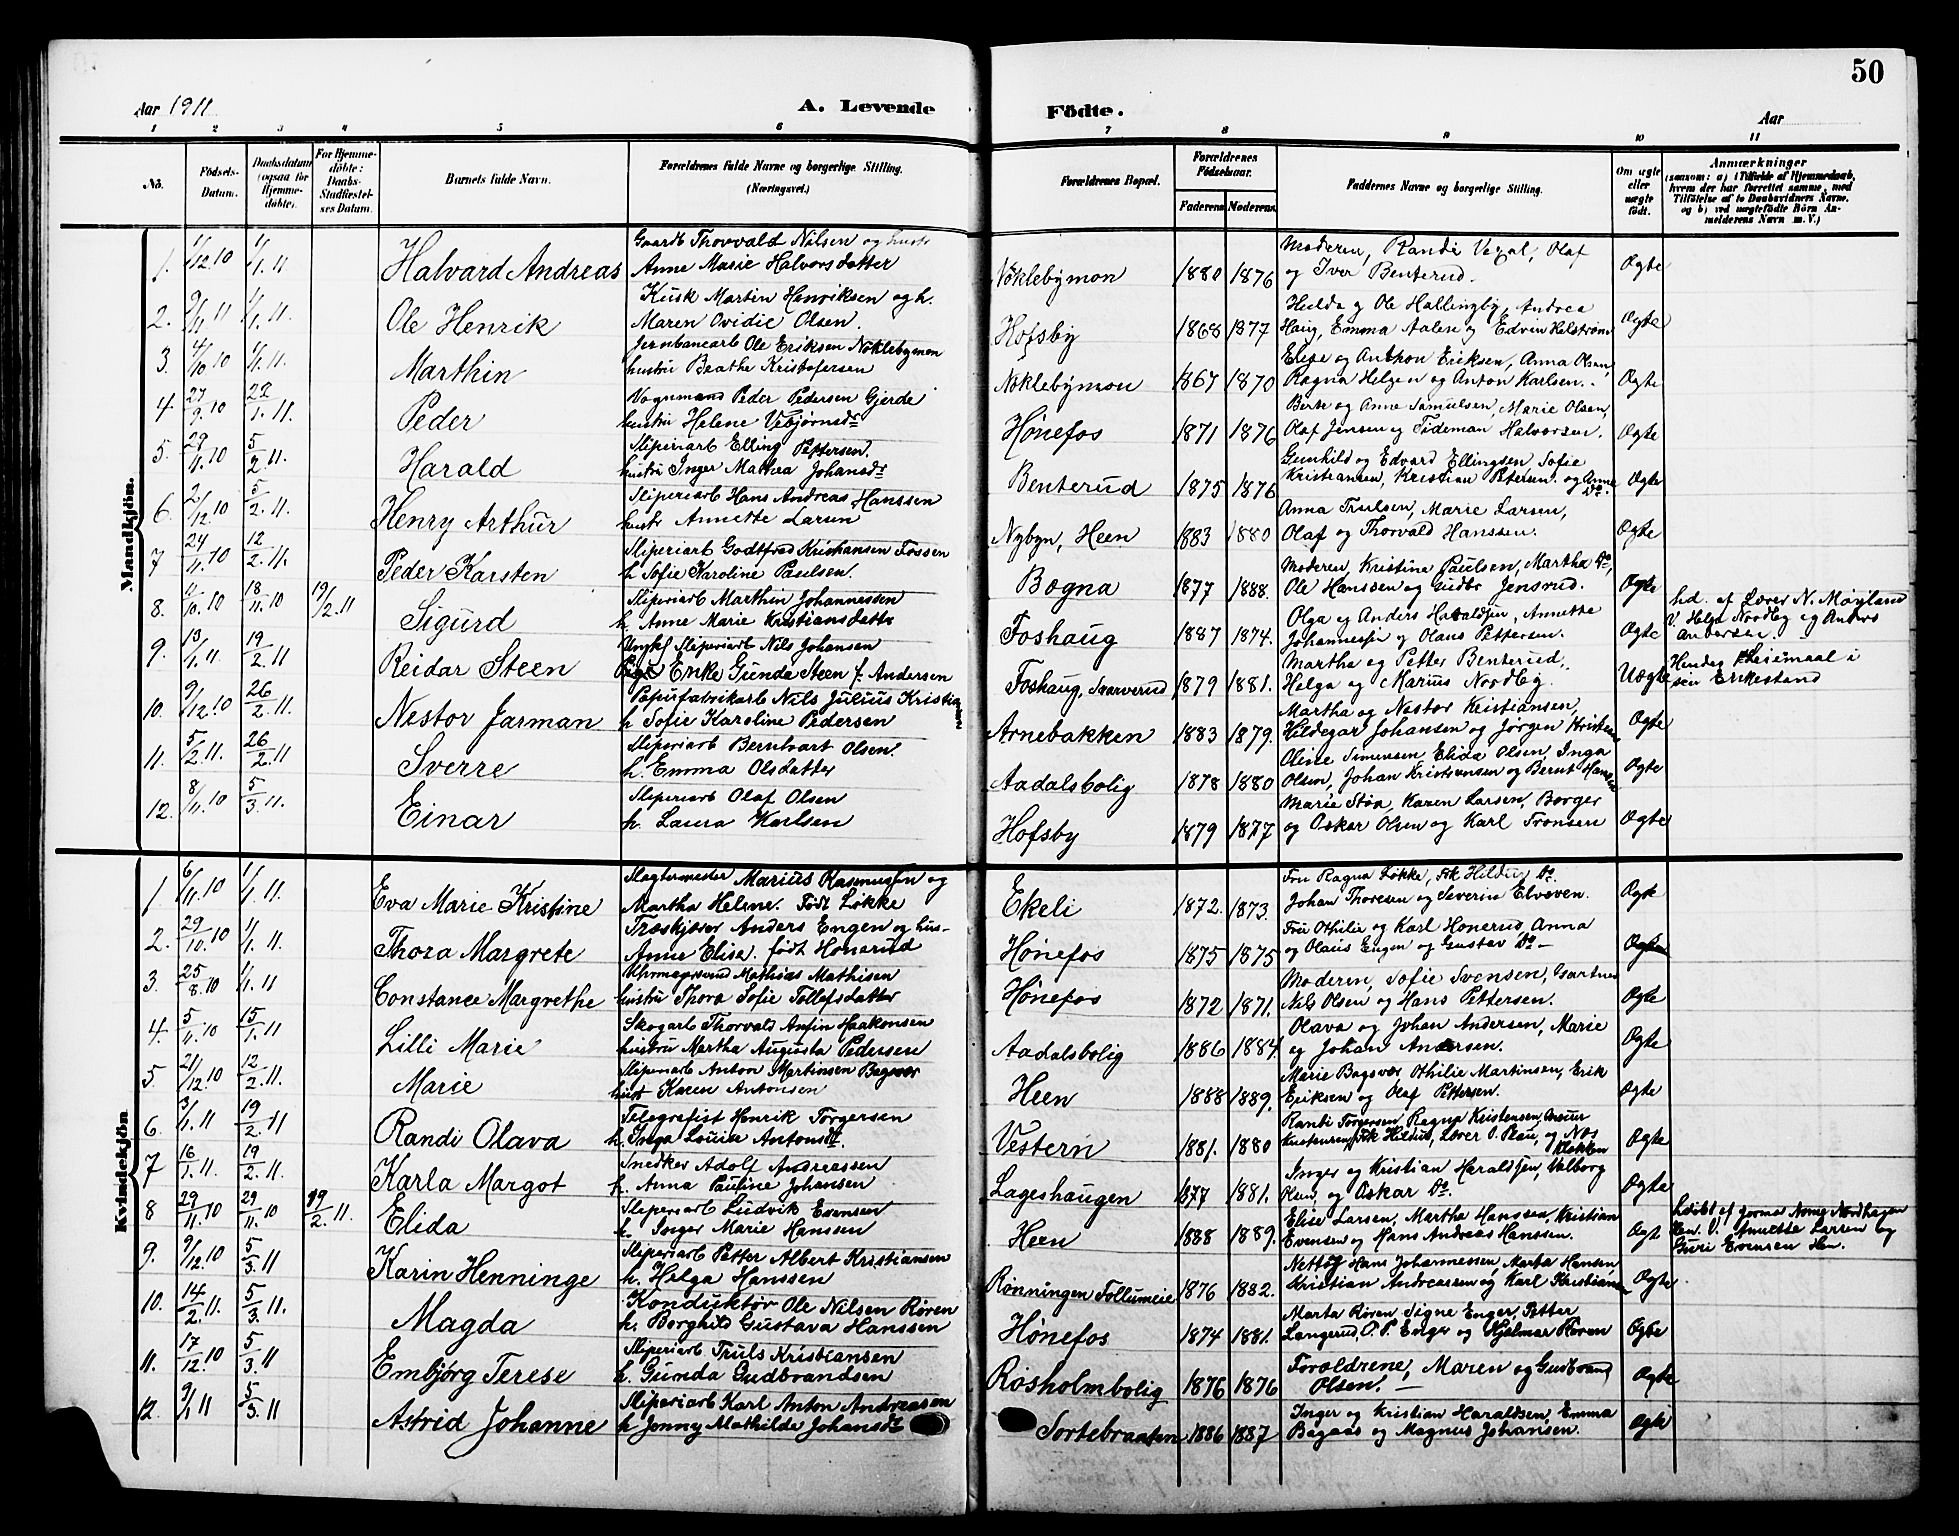 50
Aar 1911
A. Levende
Födte.
Aar
1 2 3 4 5 6 7 8 9 10 11
No.
Födsels-Datum.
Daabsdatum (ogsaa for Hjemme-döbte).
For Hjemme-döbte: Daabs-Stadfæstel-ses Datum.
Barnets fulde Navn.
Forældrenes fulde Navne og borgerlige Stilling. (Næringsvei.)
Forældrenes Bopæl.
Forældrenes Födselsaar.
Faderens
Moderens
Faddernes Navne og borgerlige Stilling.
Om ægte eller uægte födt.
Anmærkninger
(saasom: a) i Tilfælde af Hjemmedaab,
hvem der har forrettet samme, med
Tilföielse af to Daabsvidners Navne.
og b) ved uægtefödte Börn An-
melderens Navn m. V.)
Mandkjön.
1. 1/12.10 1/1.11 Halvard Andreas
Gaardb Thorvald Nilsen og hustr
Anne Marie Halvorsdatter
Nöklebymon 1880 1876
Moderen, Randi Vexal, Olaf
og Iver Benterud.
Ægte
2. 9/11 1/1.11. Ole Henrik
Kusk Martin Henriksen og h.
Maren Ovidie Olsen.
Hofsby 1868 1877
Hulda og Ole Hallingby, Andrea
Haug, Emma Aalen og Edvin Helström
Ægte
3. 4/10 10 1/1.11. Marthin
Jernbanearb Ole Eriksen Nöklebymon
hustru Beathe Kristofersen
Nöklebymon 1867 1870
Elise og Anthon Eriksen, Anna Olsen,
Ragna Helgen og Anton Karlsen.
Ægte
4 27/9.10 22/1.11. Peder
Vognmand Peder Pedersen Gjerde
hustru Helene Vebjörnsdr
Hönefos 1871 1876
Berte og Anne Samuelsen, Marie Olsen,
Olaf Jensen og Tideman Halvorsen.
Ægte
5. 29/11.10 5/2.11. Harald
Sliperiarb Elling Pettersen.
hustru Inger Mathea Johansdr
Benterud 1875 1876
Gunhild og Edvard Ellingsen, Sofie
Kristiansen, Kristian Petersen og Anna Do.
Ægte
6. 2/12.10 5/2.11. Henry Arthur
Sliperiarb Hans Andreas Hanssen
hustr Annette Larsen
Nybyn, Heen 1883 1880
Anna Trulsen, Marie Larsen,
Olaf og Thorvald Hanssen.
Ægte
7 24/11.10 12/2.11. Peder Karsten
Sliperiarb Godtfred Kristiansen Fossen
h Sofie Karoline Paulsen.
Bogna 1877 1888.
Moderen, Kristine Paulsen, Martha Do,
Ole Hanssen og Gudbr Jensrud.
Ægte
8. 11/10.10 18/11.10 19/2.11 Sigurd
Sliperiarb Marthin Johannessen
h Anne Marie Kristiansdattr
Foshaug 1887 1874.
Olga og Anders Haraldsen, Annette
Johannessen og Olaus Pettersen.
Ægte
hd. af Lærer N. Möyland
V. Helga Nordby og Anders
Andersen.
9. 13/1.11. 19/2.11 Reidar Steen
Ungkl Sliperiarb Nils Johansen
Pige Enke Gunda Steen f. Andersen
Foshaug, Svarverud 1879 1881.
Martha og Petter Benterud,
Helga og Marius Nordby.
Uægte
Hendes Leiemaal i
sin Enkestand
10. 9/12.10 26/2.11. Nestor Jarman
Papirfabrikarb Nils Julius Kristiansen
h Sofie Karoline Pedersen
Arnebakken 1883 1879.
Martha og Nestor Kristiansen,
Hildegar Johansen og Jörgen
Ægte
11. 5/2.11. 26/2.11 Sverre
Sliperiarb Berntvart Olsen.
h. Emma Olsdatter
Aadalsbolig 1878 1880
Oline Simensen, Elida Olsen, Inga
Olsen, Johan Kristiansen og Bernt Hansen
Ægte
12. 8/11.10 5/3.11. Einar
Sliperiarb Olaf Olsen
h. Laura Karlsen
Hofsby 1879 1877
Marie Stöa, Karen Larsen, Borger
og Oskar Olsen og Karl Tronsen
Ægte
Kvindekjön
1. 6/11.10 1/1.11. Eva Marie Kristine
Slagtermester Marius Rasmussen og
Martha Helene. Födt Lökke
Ekeli 1872. 1873.
Fru Ragna Lökke, Frk Hildur Do.
Johan Thoresen og Severin Elveven.
Ægte
2. 29/10.10 1/1.11. Thora Margrete
Træskjærer Anders Engen og hus-
Anne Elise. födt Honerud
Hönefos 1875 1875
Fru Othilie og Karl Honerud, Anna
og Olaus Engen og Gustav Do —
Ægte
3. 25/8.10 1/1.11 Constance Margrethe
Uhrmagersvend Mathias Mathisen
hustru Thora Sofie Tollefsdatter
Hönefos 1872 1871.
Moderen, Sofie Svensen, Gartner
Nels Olsen og Hans Pettersen.
Ægte
4. 5/11.10 15/1.11 Lilli Marie
Skogarb Thorvald Anfin Haakonsen
hustru Martha Augusta Pedersen
Aadalsbolig 1886 1884.
Olava og Johan Andersen, Marie
og Johan Andersen.
Ægte
5. 21/12.10 12/2.11. Marie
Sliperiarb Anton Martinsen Bagsvær
hust Karen Antonsen
Heen 1888 1889.
Marie Bagsvær Othilie Martinsen, Erik
Eriksen og Olaf Pettersen.
Ægte
6 3/1.11 19/2.11 Randi Olava
Telegrafist Henrik Torgersen
h. Inga Louise Antonsdt.
Vestern 1881. 1880
Randi Torgersen, Ragna Kristensen,
Frk Hildur, Lærer O. Rau, og Nos
Klokken
Ægte
7 16/1.11. 19/2.11. Karla Margot
Snedker Adolf Andreassen
h. Anna Pauline Johansen
Lageshaugen 1877 1881.
Inger og Kristian Haraldsen, Valborg
Olsen, og Oskar Do.
Ægte
8 29/11.10 29/11.10 19/2.11. Elida
Sliperiarb Ludvik Evensen
h. Inger Marie Hansen
Heen 1888 1889.
Elise Larsen, Martha Hanssen, Kristian
Evensen og Hans Andreas Hanssen.
Ægt
hdöbt af jorma Nordhagen
Hen. V. Annette Larsen og
Guri Evensen Hen.
9. 9/12.10 5/3.11 Karin Henninge
Sliperiarb Petter Albert Kristiansen
h. Helga Hanssen
Rönningen Follumeie 1876 1882.
Netty Hans Johannessen, Marta Hansen,
Kristian Andreassen og Karl Kristiansen
Ægte
10. 14/2.11. 5/3.11. Magda
Konduktör Ole Nilsen Rören
h. Borghild Gustava Hanssen
Hönefos 1874 1881.
Marta Rören, Signe Enger, Petter
Langerud, O. P. Enger og Hjalmar Rören
Ægte
11. 17/12.10 5/3.11 Embjörg Terese
Sliperiarb. Truls Kristiansen
h. Gunda Gudbrandsen
Rösholmbolig 1876 1876
Forældrene, Maren og Gudbrand
Olsen. —
Ægte
12. 9/1 11 5/3.11 Astrid Johanne
Sliperiarb Karl Anton Andreasen
h Jenny Mathilde Johansdt
Sortebraaten 1886 1887
Inger og Kristian Haraldsen, Emma
Bagaas og Magnus Johansen.
Ægte